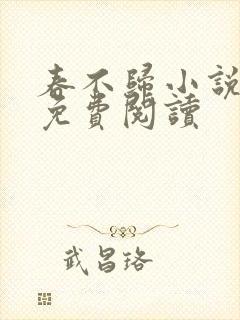 春不歸小說
免費閱讀
武昌珞